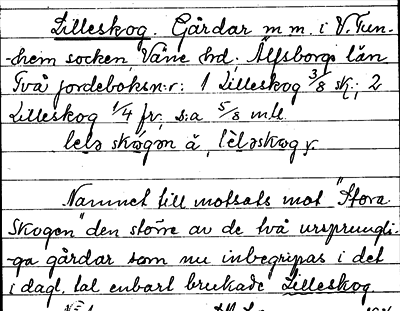 Lilleskog. Gårdar m m. i V. Tun-
-hem socken, Väne hd., Älfsborgs län
Två jordeboksn:r: 1 Lilleskog 3/8 sk.; 2
Lilleskog 1/4 fr., s:a 5/8 mtl.
Namnet till motsats mot "Stora
Skogen" den större av de två ursprungli-
-ga gårdar som nu inbegripas i det
i dagl. tal enbart brukade Lilleskog